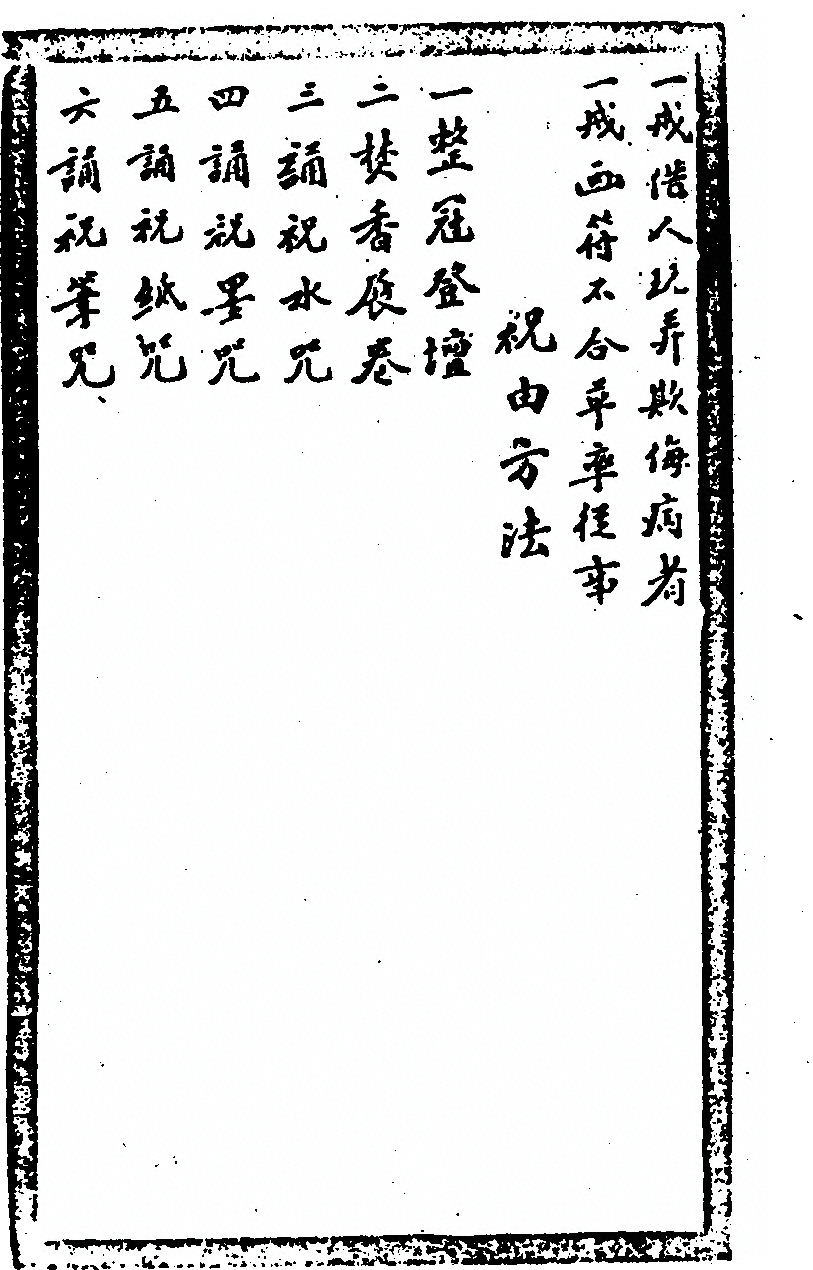 一戒借人玩弄欺侮病者
一戒画符不合草率從事
祝由方法
一整冠登壇
二焚香展卷
三誦祝水咒
四誦祝墨咒
五誦祝紙咒
六誦祝筆咒